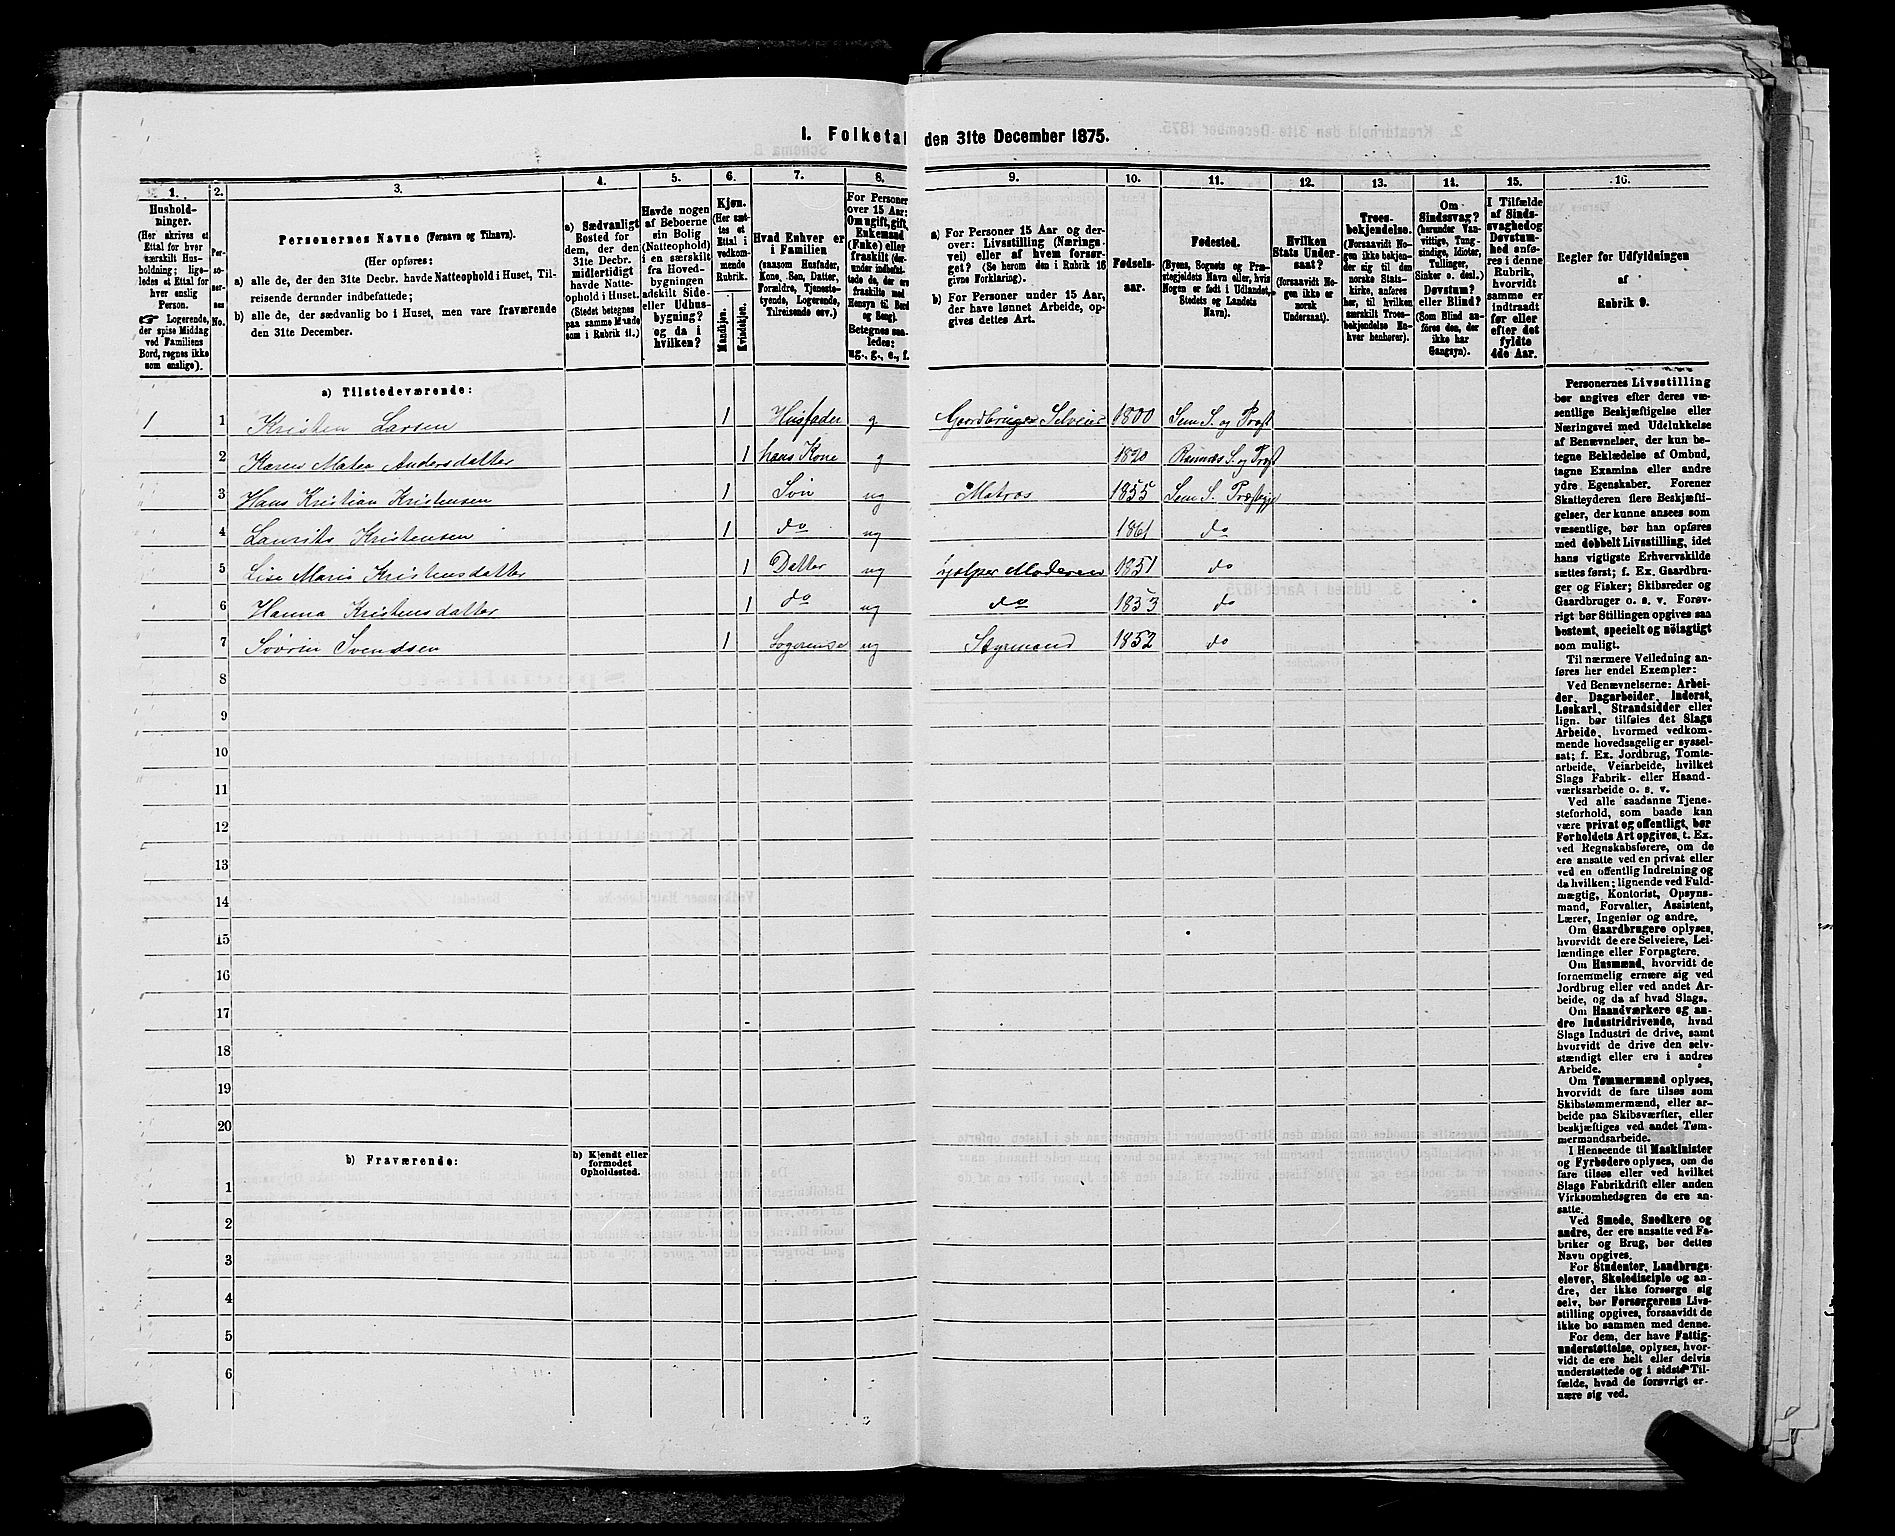 1. Folketal den 31te December 1875.
1. 2. 3. 4. 5. 6. 7. 8. 9. 10. 11. 12. 13. 14. 15. 16.
Hushold-
ninger.
(Her skrives et
Ettal for hver
særskilt Hus-
holdning; lige-
ledes et Ettal for
hver enslig
Person.
☛ Logerende,
der spise Middag
ved Familiens
Bord, regnes ikke
som enslige).
Per-
so-
ner-
nes
No.
Personernes Navne (Fornavn og Tilnavn).
(Her opføres:
a) alle de, der den 31te Decbr. havde Natteophold i Huset, Til-
reisende derunder indbefattede;
b) alle de, der sædvanlig bo i Huset, men vare fraværende
den 31te December.
a) Sædvanligt
Bosted for
dem, der den
31te Decbr.
midlertidigt
havde Natte-
ophold i Huset.
(Stedet betegnes
paa samme Maade
som i Rubrik 11.)
Havde nogen
af Beboerne
sin Bolig
(Natteophold)
i en særskilt
fra Hoved-
bygningen
adskilt Side-
eller Udhus-
bygning?
og da i
hvilken?
Kjøn.
(Her sæt-
tes et
Ettal i
vedkom-
mende
Rubrik.
Mandkjøn.
Kvindekjøn.
Hvad Enhver er
i Familien
(saasom Husfader,
Kone, Søn, Datter,
Forældre, Tjeneste-
tyende, Logerende,
Tilreisende osv.)
For Personer
over 15 Aar:
Om ugift, gift,
Enkemand
(Enke) eller
fraskilt (der-
under indbefat-
tede de, der ere
fraskilte med
Hensyn til Bord
og Seng).
Betegnes saa-
ledes:
ug., g., e., f.
a) For Personer 15 Aar og der-
over: Livsstilling (Nærings-
vei) eller af hvem forsør-
get? (Se herom den i Rubrik 16
givne Forklaring).
b) For Personer under 15 Aar,
der have lønnet Arbeide, op-
gives dettes Art.
Fødsels-
aar.
Fødested.
(Byens, Sognets og Præ-
stegjeldets Navn eller, hvis
Nogen er født i Udlandet,
Stedets og Landets
Navn).
Hvilken
Stats Under-
saat?
(forsaavidt No-
gen ikke er
norsk
Undersaat).
Troes-
bekjendelse.
(Forsaavidt No-
gen ikke bekjen-
der sig til den
norske Stats-
kirke, anføres
her, til hvilken
særskilt Troes-
bekjendelse En-
hver henhører).
Om
Sindssvag?
(herunder Van-
vittige, Tung-
sindige, Idioter,
Tullinger,
Sinker o. desl.)
Døvstum?
eller Blind?
(Som Blind an-
føres den, der
ikke har
Gangsyn).
I Tilfælde
af Sinds-
svaghed og
Døvstum-
hed anfø-
res i denne
Rubrik,
hvorvidt
samme er
indtraadt
før eller
efter det
fyldte
4de Aar.
Regler for Udfyldningen
af
Rubrik 9.
a) Tilstedeværende:
1 1 Kristen Larsen 1 Husfader g Gardbruger Selveier 1800 Sem S. og Prgst
2 Karen Matea Andersdatter 1 hans Kone g 1820 Ramnæs S. og Prgst
3 Hans Kristian Kristensen 1 Søn ug Matros 1855 Sem S. Præstgj
4 Laurits Kristensen 1 do ug 1861 do
5 Lise Marie Kristensdatter 1 Datter ug hjælper Moderen 1851 do
6 Hanna Kristensdatter 1 do ug do 1853 do
7 Sørin Svendsen 1 Logerense ug Styrmand 1852 do
8
9
10
11
12
13
14
15
16
17
18
19
20
b) Fraværende:
b) Kjendt eller
formodet
Opholdssted.
1
2
3
4
5
6
Personernes Livsstilling
bør angives efter deres væ-
sentlige Beskjæftigelse eller
Næringsvei med Udelukkelse
af Benævnelser, der kun be-
tegne Beklædelse af Ombud,
tagne Examina eller andre
ydre Egenskaber. Forener
Skatteyderen flere Beskjæfti-
gelser, der kunne ansees som
væsentlige, bør han opføres
med dobbelt Livsstilling, idet
hans vigtigste Erhvervskilde
sættes først; f. Ex. Gaardbru-
ger og Fisker; Skibsreder og
Gaardbruger o. s. v. Forøv-
rigt bør Stillingen opgives saa
bestemt, specielt og nøiagtigt
som muligt.
Til nærmere Veiledning an-
føres her endel Exempler:
Ved Benævnelserne: Arbei-
der, Dagarbeider, Inderst,
Løskarl, Strandsidder eller
lign. bør tilføies det Slags
Arbeide, hvormed vedkom-
mende hovedsagelig er syssel-
sat; f. Ex. Jordbrug, Tomte-
arbeide, Veiarbeide, hvilket
Slags Fabrik- eller Haand-
værksarbeide o. s. v.
Ved alle saadanne Tjene-
steforhold, som baade kan
være privat og offentligt, bør
Forholdets Art opgives, t. Ex.
ved Regnskabsførere, om de
ere ansatte ved en privat eller
ved en offentlig Indretning og
da hvilken; lignende ved Fuld-
mægtig, Kontorist, Opsyns-
mand, Forvalter, Assistent,
Lærer, Ingeniør og andre.
Om Gaardbrugere oplyses,
hvorvidt de ere Selveiere, Lei-
lændinge eller Forpagtere.
Om Husmænd, hvorvidt de
fornemmelig ernære sig ved
Jordbrug eller ved andet Ar-
beide, og da af hvad Slags.
Om Haandværkere og an-
dre Industridrivende, hvad
Slags Industri de drive, samt
hvorvidt de drive den selv-
stændigt eller ere i andres
Arbeide.
Om Tømmermænd oplyses,
hvorvidt de fare tilsøs som
Skibstømmermænd, eller ar-
beide paa Skibsværfter, eller
beskjæftiges ved andet Tøm-
mermandsarbeide.
I Henseende til Maskinister
og Fyrbødere oplyses, om de
fare tilsøs eller ved hvilket
Slags Fabrikdrift eller anden
Virksomhedsgren de ere an-
satte.
Ved Smede, Snedkere og
andre, der ere ansatte ved Fa-
briker og Brug, bør dettes
Navn opgives.
For Studenter, Landbrugs-
elever, Skoledisciple og an-
dre, der ikke forsørge sig
selv, bør Forsørgerens Livs-
stilling opgives, forsaavidt de
ikke bo sammen med denne.
For dem, der have Fattig-
understøttelse, oplyses, hvor-
vidt de ere helt eller delvis
understøttede og i sidste Til-
fælde, hvad de forøvrigt er-
nære sig ved.